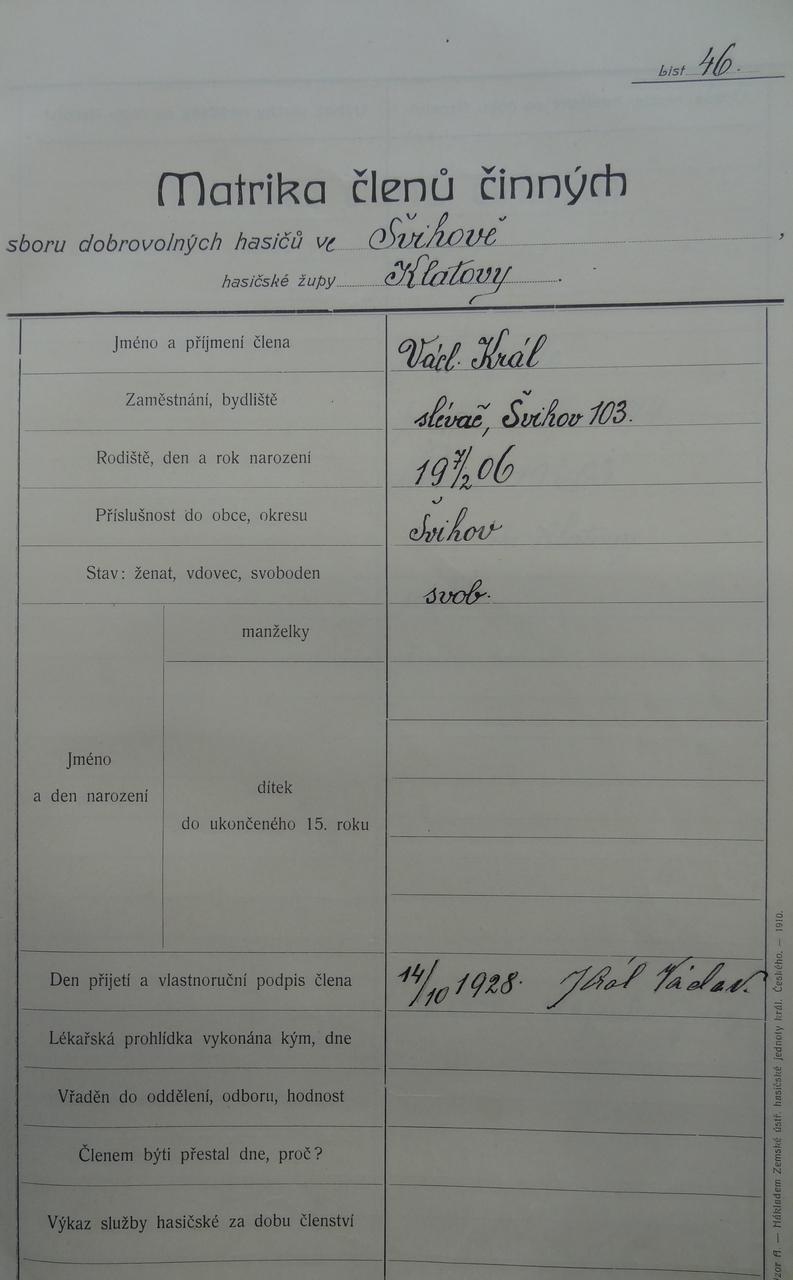 List 46.
Matrika členů činných
sboru dobrovolných hasičů ve Švihově,
hasičské župy Klatovy.
Jméno a příjmení člena Václ. Král
Zaměstnání, bydliště slévač, Švihov 103.
Rodiště, den a rok narození
Příslušnost do obce, okresu Švihov
Stav: ženat, vdovec, svoboden svob.
manželky
Jméno
a den narození
dítek
do ukončeného 15. roku
Den přijetí a vlastnoruční podpis člena 14/10 1928. Král Václav.
Lékařská prohlídka vykonána kým, dne
Vřaděn do oddělení, odboru, hodnost
Členem býti přestal dne, proč?
Výkaz služby hasičské za dobu členství
zor A. — Nákladem Zemské ústř. hasičské jednoty král. Českého. — 1910.